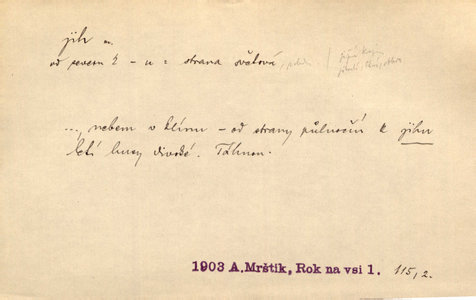 jih m.
od severu k – u = strana světová,
..., nebem v klínu – od strany půlnoční k jihu
letí husy divoké. Táhnou.
1903 A. Mrštík, Rok na vsi 1. 115, 2.